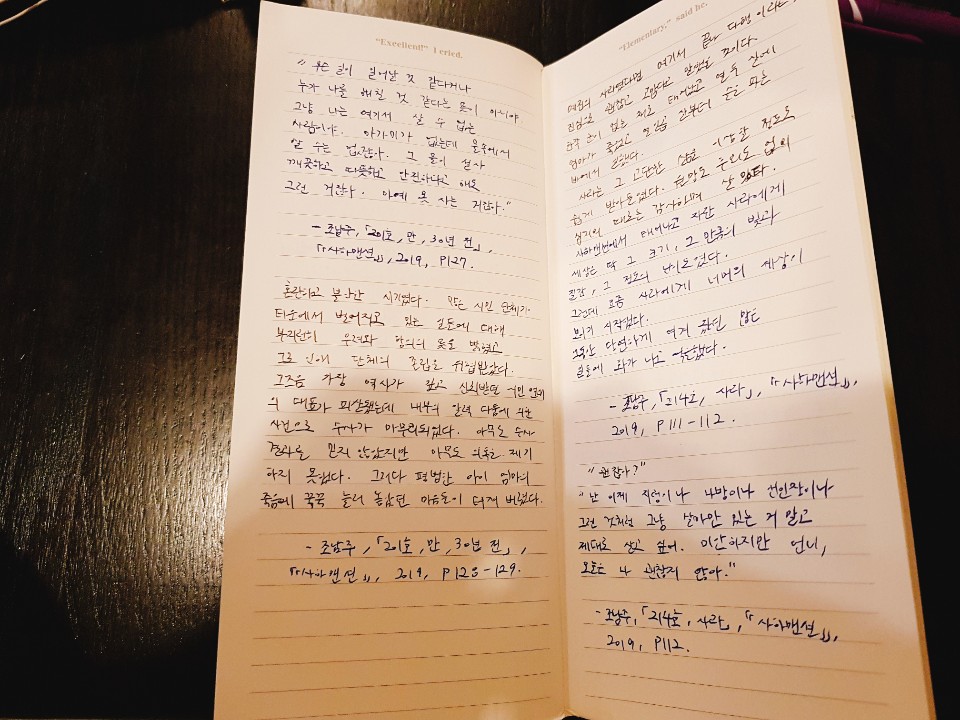 "Excellent!" I cried.
" 무슨 일이 일어날 것 같다거나
누가 나를 해칠 것 같다는 뜻이 아니야
그냥 나는 여기서 살 수 없는
사람이야. 아가미가 없는데 물속에서
살 수는 없잖아. 그 물이 설사
깨끗하고 따뜻하고 안전하다고 해도
그런 거잖아. 아예 못 사는 거잖아."
- 조남주, 「201호, 만, 30년 전」,
『사하맨션』, 2019, P127.
혼란하고 불안한 시기였다. 많은 시민 단체가
타운에서 벌어지고 있는 일들에 대해
부지런히 우려와 항의의 뜻을 밝혔고
그로 인해 단체의 존립을 위협받았다.
그즈음 가장 역사가 깊고 신뢰받던 시민 단체
의 대표가 피살됐는데 내부의 알력 다툼에 의한
사건으로 수사가 마무리되었다. 아무도 수사
결과를 믿지 않았지만 아무도 의혹을 제기
하지 못했다. 그러다 평범한 아이 엄마의
죽음에 꾹꾹 눌러 놓았던 마음들이 터져 버렸다.
- 조남주, 「201호, 만, 30년 전」,
『사하맨션』, 2019, P128-129.
"Elementary," said he.
여기서 끝나 다행이라고,
진심으로 괜찮고 고맙다고 말했을 것이다.
한쪽 눈이 없는 채로 태어났고 열 살에
엄마가 죽었고 술 파는
바에서 일했다.
사라는 그 고단한 삶을 이상할 정도로
쉽게 받아들였다. 원망도 후회도 없이
심지어 때로는 감사하며 살았다.
사하맨션에서 태어나고 자란 사라에게
세상은 딱 그 크기, 그 만큼의 빛과
질감, 그 정도의 난이도였다.
그런데 요즘 사라에게 너머의 세상이
보이기 시작했다.
그동안 당연하게 여겨 왔던 많은
일들에 화가 나고 억울했다.
- 조남주, 「214호, 사라」, 『사하맨션』,
2019, P111-112.
"괜찮아?"
"난 이제 지렁이나 나방이나 선인장이나
그런 것처럼 그냥 살아만 있는 거 말고
제대로 살고 싶어. 미안하지만 언니,
오늘은 나 괜찮지 않아."
- 조남주, 「214호, 사라」, 『사하맨션』,
2019, P112.